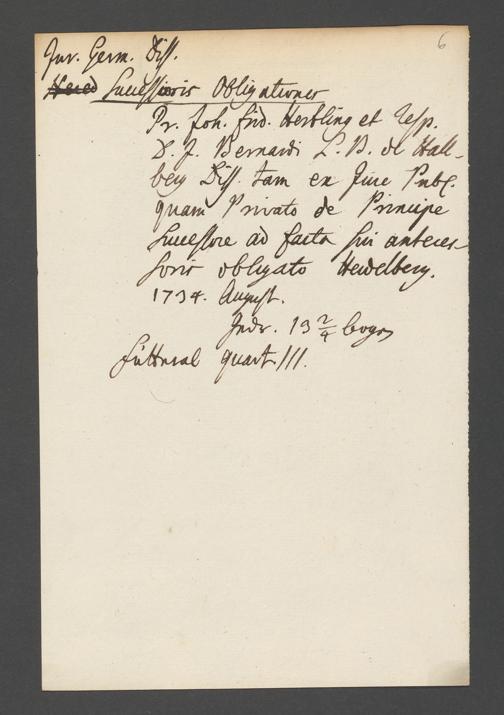 6
Jur. Germ. Diss.
Hered Successoris Obligationes
Pr. Joh. frid. Hertling et Resp.
D. J. Bernardi L. B. de Hall-
berg Diss. tam ex Jure Publ.
quam Privato de Principe
Successore ad facta sui anteces-
soris obligato Heidelberg.
1734. August.
13 2/4 bogen
futteral quart. III.